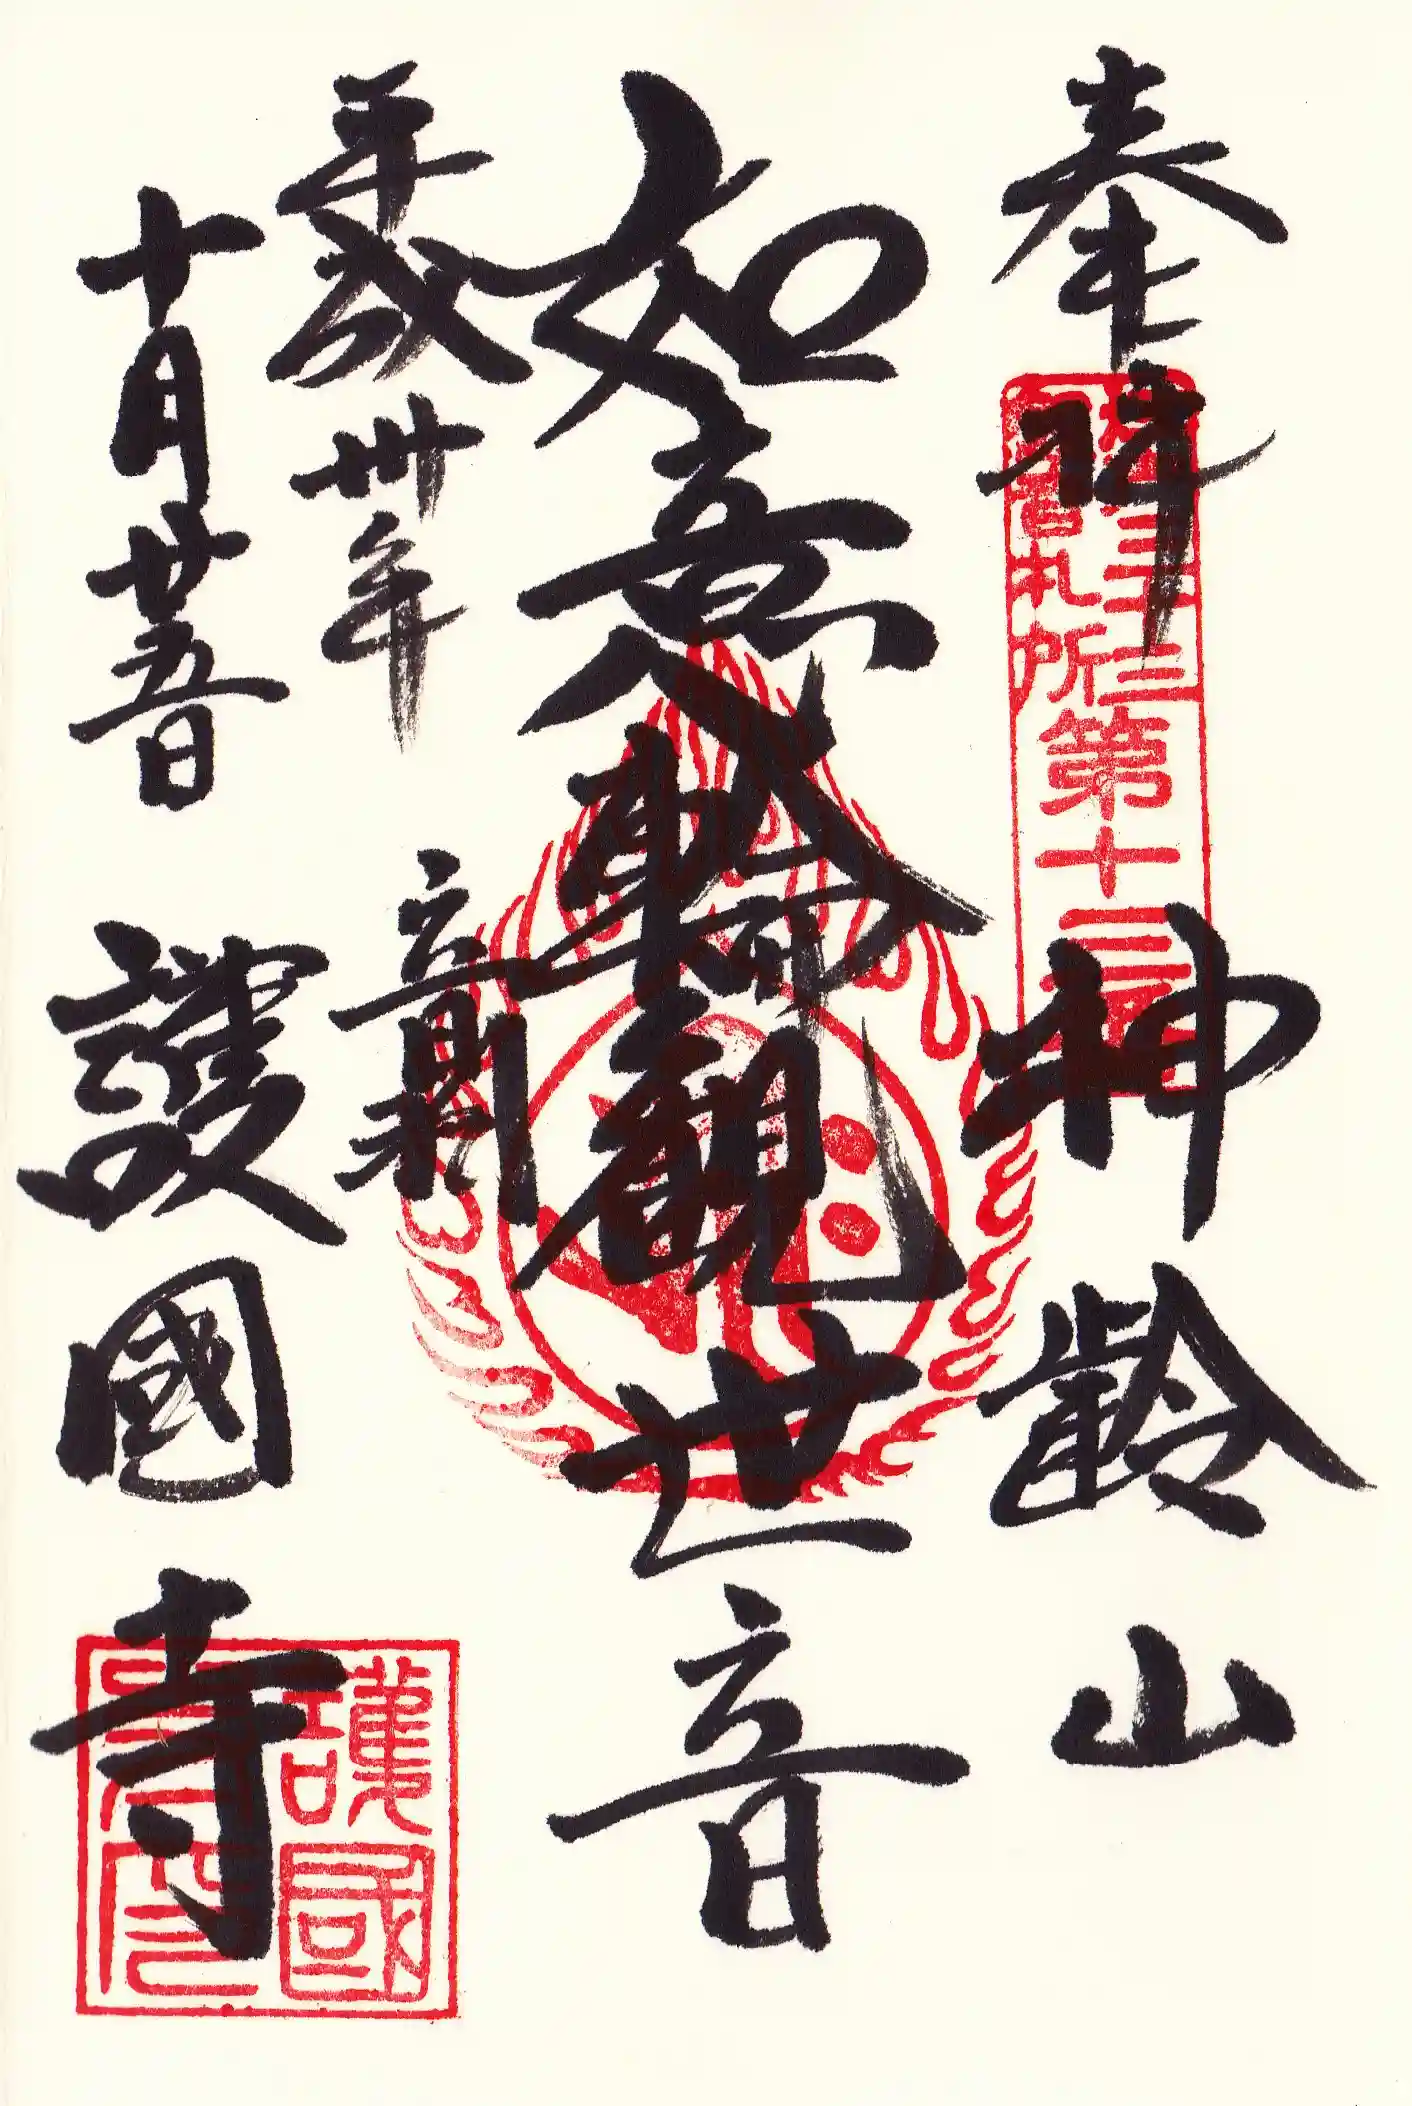 奉拝
神齢山
江戸三十三
観音札所
第十三番
如意輪觀世音
平成卅年
十月廿五日
護國寺
護國
寺印